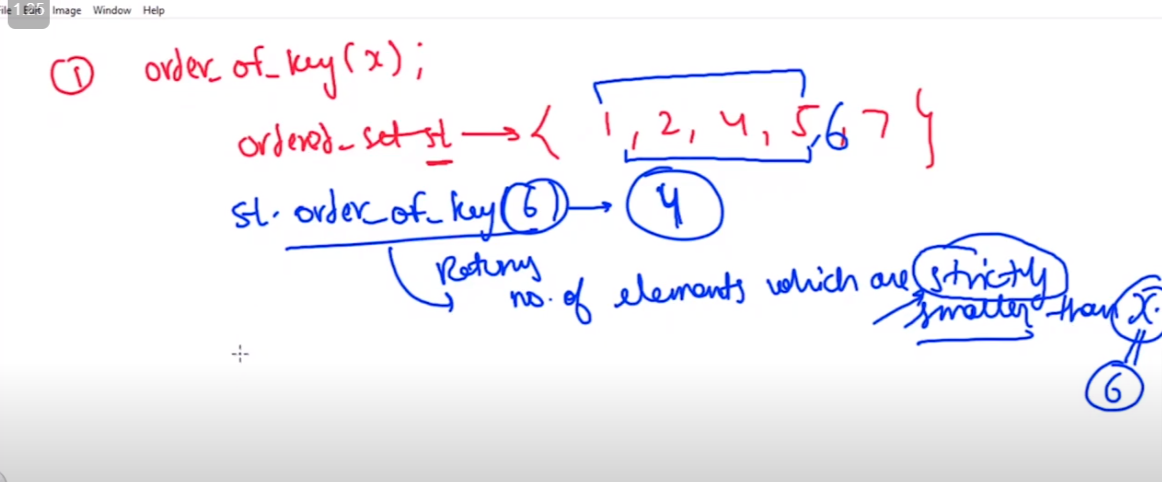 File Edit Image Window Help
1.25
① order_of_key(x);
ordered_set st → { 1, 2, 4, 5, 6, 7 }
st. order_of_key(6) → 4
Returns
no. of elements which are strictly
smaller than x.
6